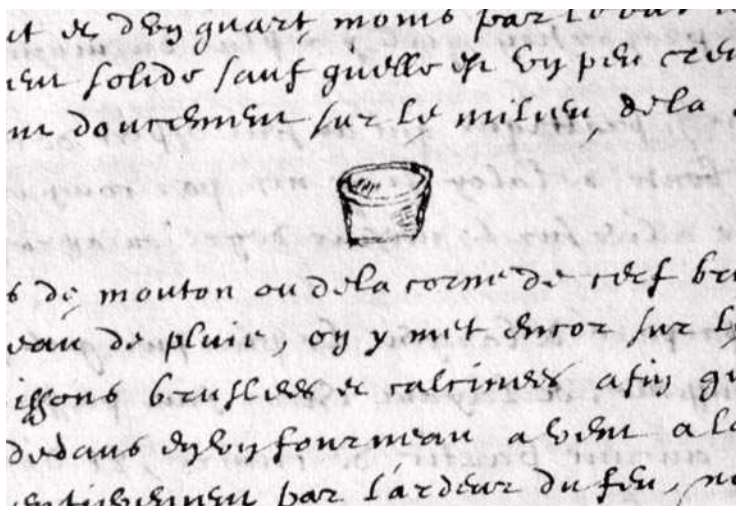 et d'un quart, moins par
solide sauf quelle est un peu
doucement sur le milieu, de la
de mouton ou de la corne de cerf
eau de pluie, on y met encor sur
issons bruslees et calcinees afin
dedans un fourneau a vent a
entierement par l'ardeur du feu,